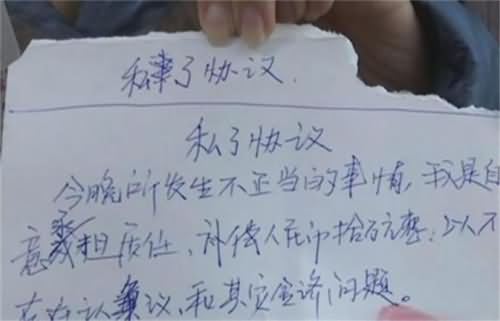 私了协议.
私了协议
今晚所发生不正当的事情,我是自
意承担责任,补偿人民币拾万元整:以人不
存在认异议,和其实经济问题。